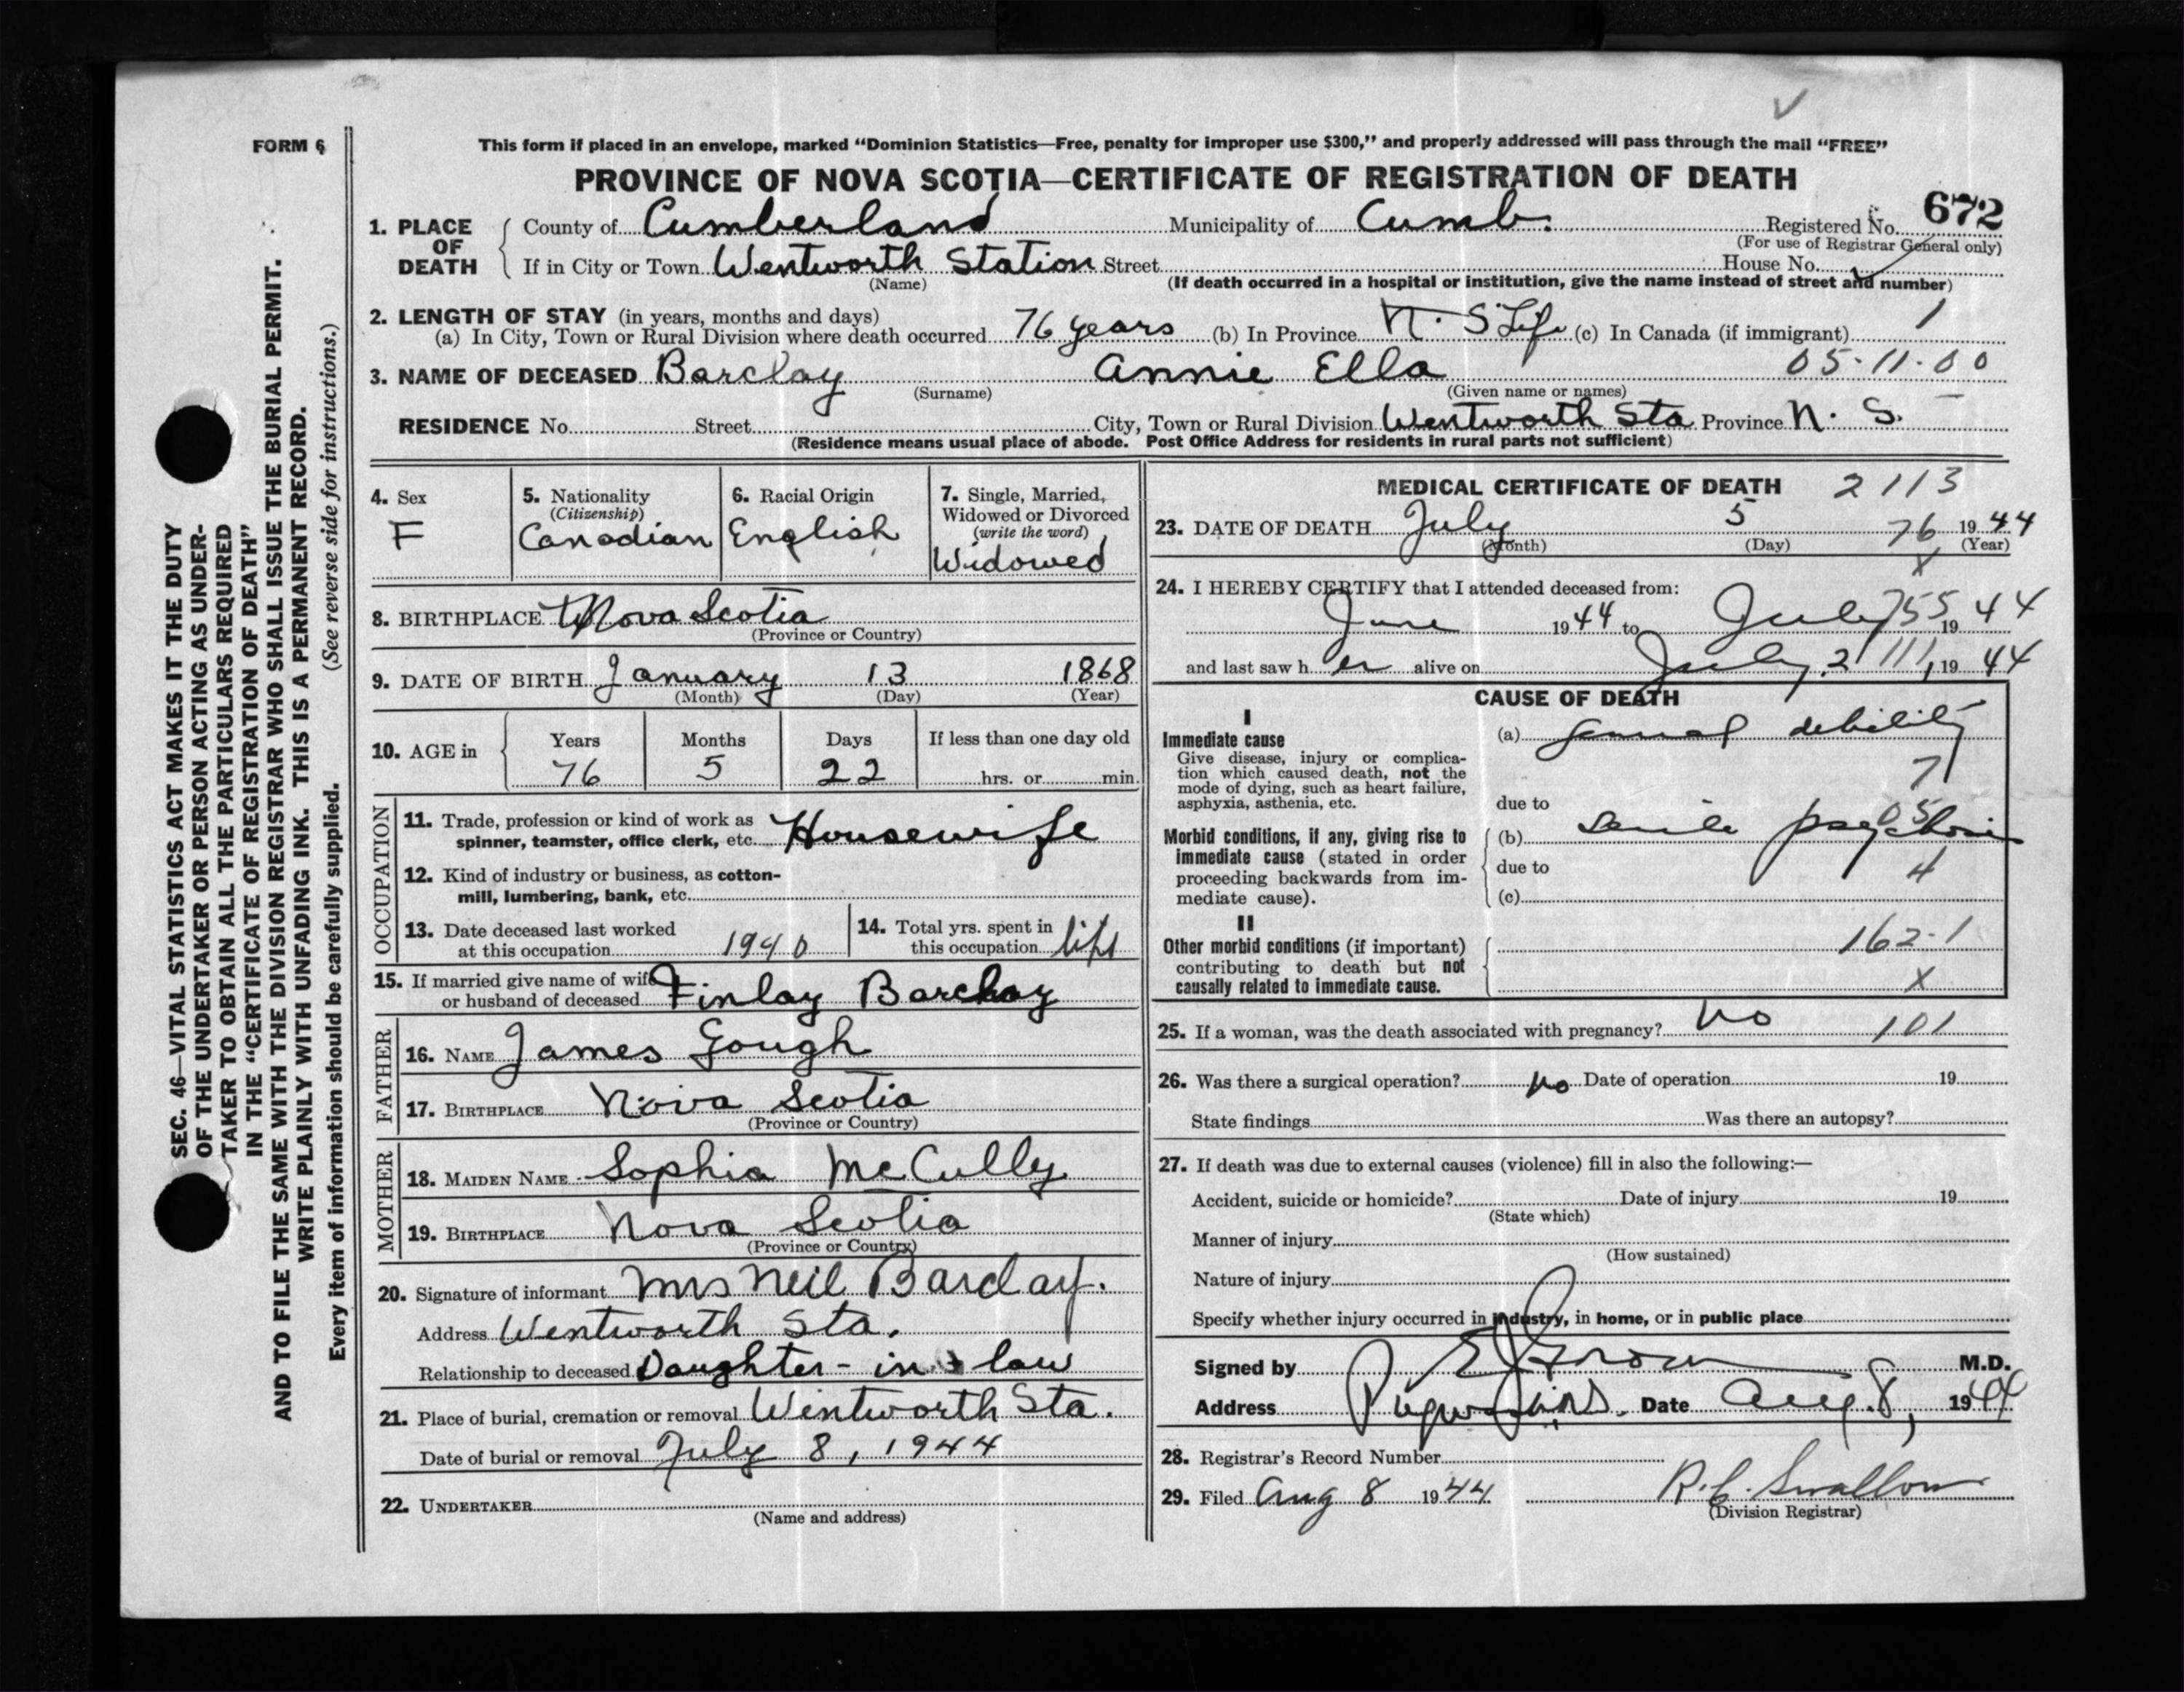 FORM 6
This form if placed in an envelope, marked “Dominion Statistics—Free, penalty for improper use $300,” and properly addressed will pass through the mail “FREE”
PROVINCE OF NOVA SCOTIA—CERTIFICATE OF REGISTRATION OF DEATH
672
1. PLACE OF DEATH County of Cumberland Municipality of Cumb. Registered No.
(For use of Registrar General only)
If in City or Town Wentworth Station Street House No.
(Name) (If death occurred in a hospital or institution, give the name instead of street and number)
2. LENGTH OF STAY (in years, months and days)
(a) In City, Town or Rural Division where death occurred 76 years (b) In Province N. S Life (c) In Canada (if immigrant) 1
3. NAME OF DECEASED Barclay Annie Ella 05-11-00
(Surname) (Given name or names)
RESIDENCE No. Street City, Town or Rural Division Wentworth Sta Province N. S.
(Residence means usual place of abode. Post Office Address for residents in rural parts not sufficient)
SEC. 46—VITAL STATISTICS ACT MAKES IT THE DUTY
OF THE UNDERTAKER OR PERSON ACTING AS UNDER-
TAKER TO OBTAIN ALL THE PARTICULARS REQUIRED
IN THE “CERTIFICATE OF REGISTRATION OF DEATH”
AND TO FILE THE SAME WITH THE DIVISION REGISTRAR WHO SHALL ISSUE THE BURIAL PERMIT.
WRITE PLAINLY WITH UNFADING INK. THIS IS A PERMANENT RECORD.
Every item of information should be carefully supplied. (See reverse side for instructions.)
4. Sex
F
5. Nationality
(Citizenship)
Canadian
6. Racial Origin
English
7. Single, Married,
Widowed or Divorced
(write the word)
Widowed
8. BIRTHPLACE Nova Scotia
(Province or Country)
9. DATE OF BIRTH January 13 1868
(Month) (Day) (Year)
10. AGE in Years Months Days If less than one day old
76 5 22 hrs. or min.
OCCUPATION
11. Trade, profession or kind of work as
spinner, teamster, office clerk, etc. Housewife
12. Kind of industry or business, as cotton-
mill, lumbering, bank, etc.
13. Date deceased last worked
at this occupation 1940
14. Total yrs. spent in
this occupation life
15. If married give name of wife
or husband of deceased Finlay Barclay
FATHER
16. NAME James Gough
17. BIRTHPLACE Nova Scotia
(Province or Country)
MOTHER
18. MAIDEN NAME Sophia McCully
19. BIRTHPLACE Nova Scotia
(Province or Country)
20. Signature of informant Mrs Neil Barclay.
Address Wentworth Sta.
Relationship to deceased Daughter-in-law
21. Place of burial, cremation or removal Wintworth Sta.
Date of burial or removal July 8, 1944
22. UNDERTAKER
(Name and address)
MEDICAL CERTIFICATE OF DEATH 2113
23. DATE OF DEATH July 5 76 1944
(Month) (Day) (Year)
X
24. I HEREBY CERTIFY that I attended deceased from:
June 1944 to July 1944
and last saw her alive on July 2 1944
CAUSE OF DEATH
I
Immediate cause
Give disease, injury or complica-
tion which caused death, not the
mode of dying, such as heart failure,
asphyxia, asthenia, etc.
(a) General debility
7
due to
05
Morbid conditions, if any, giving rise to
immediate cause (stated in order
proceeding backwards from im-
mediate cause).
(b) Senile psychosis
due to 4
(c)
II
Other morbid conditions (if important)
contributing to death but not
causally related to immediate cause.
162-1
X
25. If a woman, was the death associated with pregnancy? No 101
26. Was there a surgical operation? No Date of operation 19
State findings Was there an autopsy?
27. If death was due to external causes (violence) fill in also the following:—
Accident, suicide or homicide? Date of injury 19
(State which)
Manner of injury
(How sustained)
Nature of injury
Specify whether injury occurred in industry, in home, or in public place
Signed by M.D.
Address Date Aug. 8, 1944
28. Registrar's Record Number
29. Filed Aug 8 1944 R. C. Swallow
(Division Registrar)